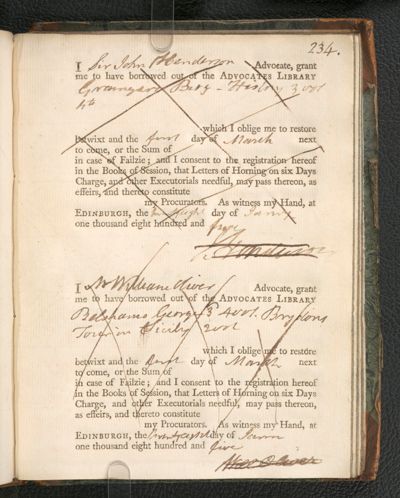 234.
I Sir John Henderson Advocate, grant
me to have borrowed out of the ADVOCATES LIBRARY
Grainger's Biog. History 3 vol
4to
which I oblige me to restore
betwixt and the first day of March next
to come, or the Sum of
in case of Failzie; and I consent to the registration hereof
in the Books of Session, that Letters of Horning on six Days
Charge, and other Executorials needful, may pass thereon, as
effeirs, and thereto constitute
my Procurators. As witness my Hand, at
EDINBURGH, the day of
one thousand eight hundred and five
Henderson
I Mr William Oliver Advocate, grant
me to have borrowed out of the ADVOCATES LIBRARY
Belshams George 3 4 vol. Brydons
Tour in Sicily 2 vol
which I oblige me to restore
betwixt and the first day of March next
to come, or the Sum of
in case of Failzie; and I consent to the registration hereof
in the Books of Session, that Letters of Horning on six Days
Charge, and other Executorials needful, may pass thereon,
as effeirs, and thereto constitute
my Procurators. As witness my Hand, at
EDINBURGH, the day of
one thousand eight hundred and five
Oliver